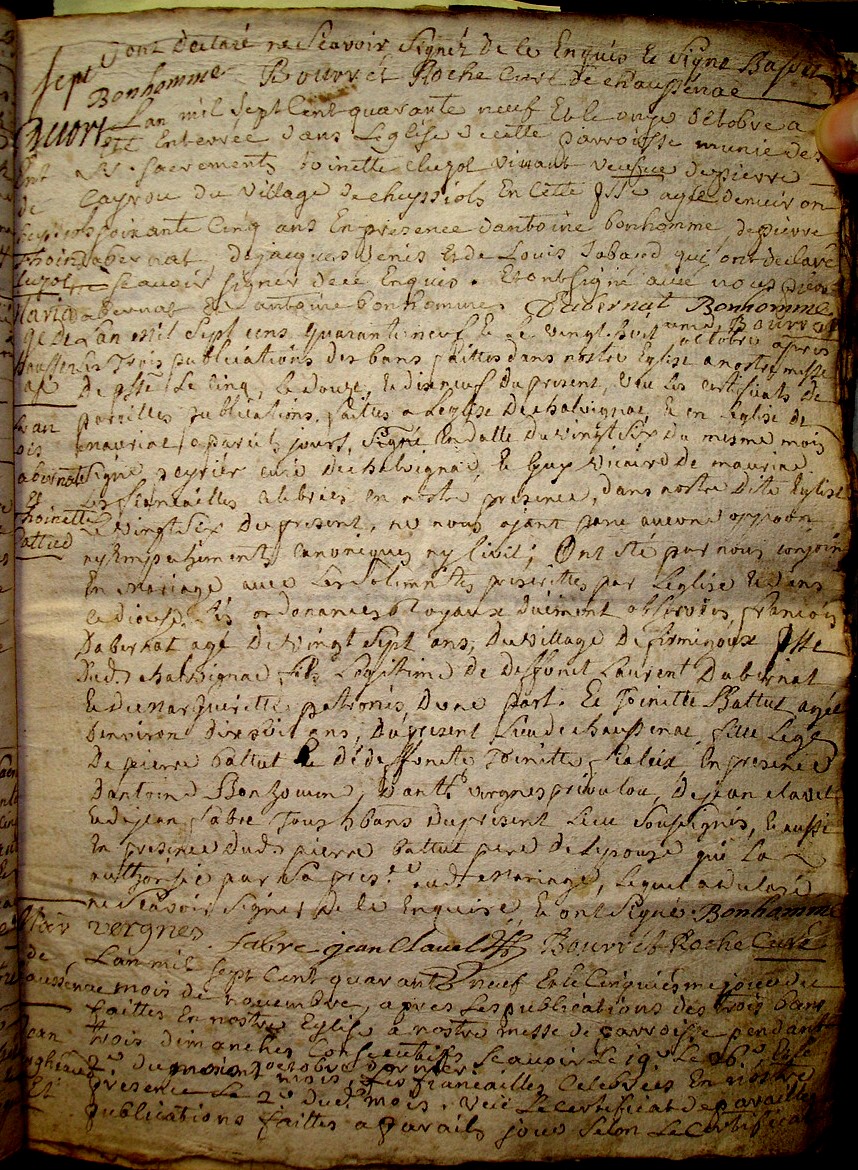 ont declaré ne scavoir signér de ce Enquis Et Signe
Bonhomme Bourret Roche Curé de chaussenac
Sept
Lan mil sept Cent quarante neuf Et le onze octobre a
Eté Enterrée dans Leglise de cette parroisse munie des
sacrements toinette vivant veufve de pierre
Cayrou du village de cheyssiols En cette psse agée denviron
soixante Cinq ans En presence dantoine bonhomme, de pierre
dabernat dejacques denis Et de Louis qui ont declaré
scavoir signer de ce Enquis. Et ont signé avec nous pierre
dabernat Et antoine bonhomme. Dabernat Bonhomme
Bourret
Lan mil sept cens quarante neuf Et le vingt huit octobre apres
Les trois publications des bans faittes dans nostre Eglise a nostre messe
De psse Le cinq, Le douze, Et dixneuf du present, veu Les certificats de
pareilles publications, faittes a Leglise De chalvignac, Et en Leglise de
mauriac a pareils jours, signé En datte du vingt six du mesme mois
signé veyrier curé de chalvignac, Et Guy vicaire de mauriac
Les fiancailles celebrées en nostre presence, dans nostre dite Eglise
Le vingt six du present, ne nous ayant paru aucune opp̄on
ny Empechement canonique ny civil; Ont été par nous conjoins
En mariage avec Les solemnités prescrittes par Leglise Et dans
ce diocese, Les ordonances Royaux duement observées, francois
Dabernat agé De vingt sept ans, Du village De firminoux psse
Dud. chalvignac fils Legitime de deffunt Laurent Dabernat
Et de margueritte patronis, D'une part. Et Toinette Battut agée
Denviron dixhuit ans, Du present Lieu de chaussenac, fille Leg.e
De pierre battut Et de deffuncte Toinette En presence
Dantoine Bonhomme, D'anth.e vergnes De jean clavel
Et de jean fabre Tous hbans du present Lieu soussignés, Et aussi
En presence Dud. pierre battut pere de Lepouze qui La
authorisée par sa pres.ce aud. mariage, Lequel a declaré
ne scavoir signer de ce Enquis, Et ont signé. Bonhomme
vergnes fabre jean Clavel Bourret Roche Curé
Lan mil sept Cent quarante neuf Et le Cinquiesme jour du
mois de novembre, apres Les publications des trois bans
faittes En nostre Eglise a nostre messe de parroisse pendant
trois dimanches Consecutifs scavoir Le 19.e Le 26.e Et le
2.e du octobre dernier. Les fiancailles Celebrées En nostre
presence Le 2.e dud. mois. veu Le certificat de pareilles
publications faittes a pareils jour selon Le certificat
mort
de
Mariage de
Chaussenac
francois
dabernat
et
thoinette
battud
Mar
de
chaussenac
Jean
Et